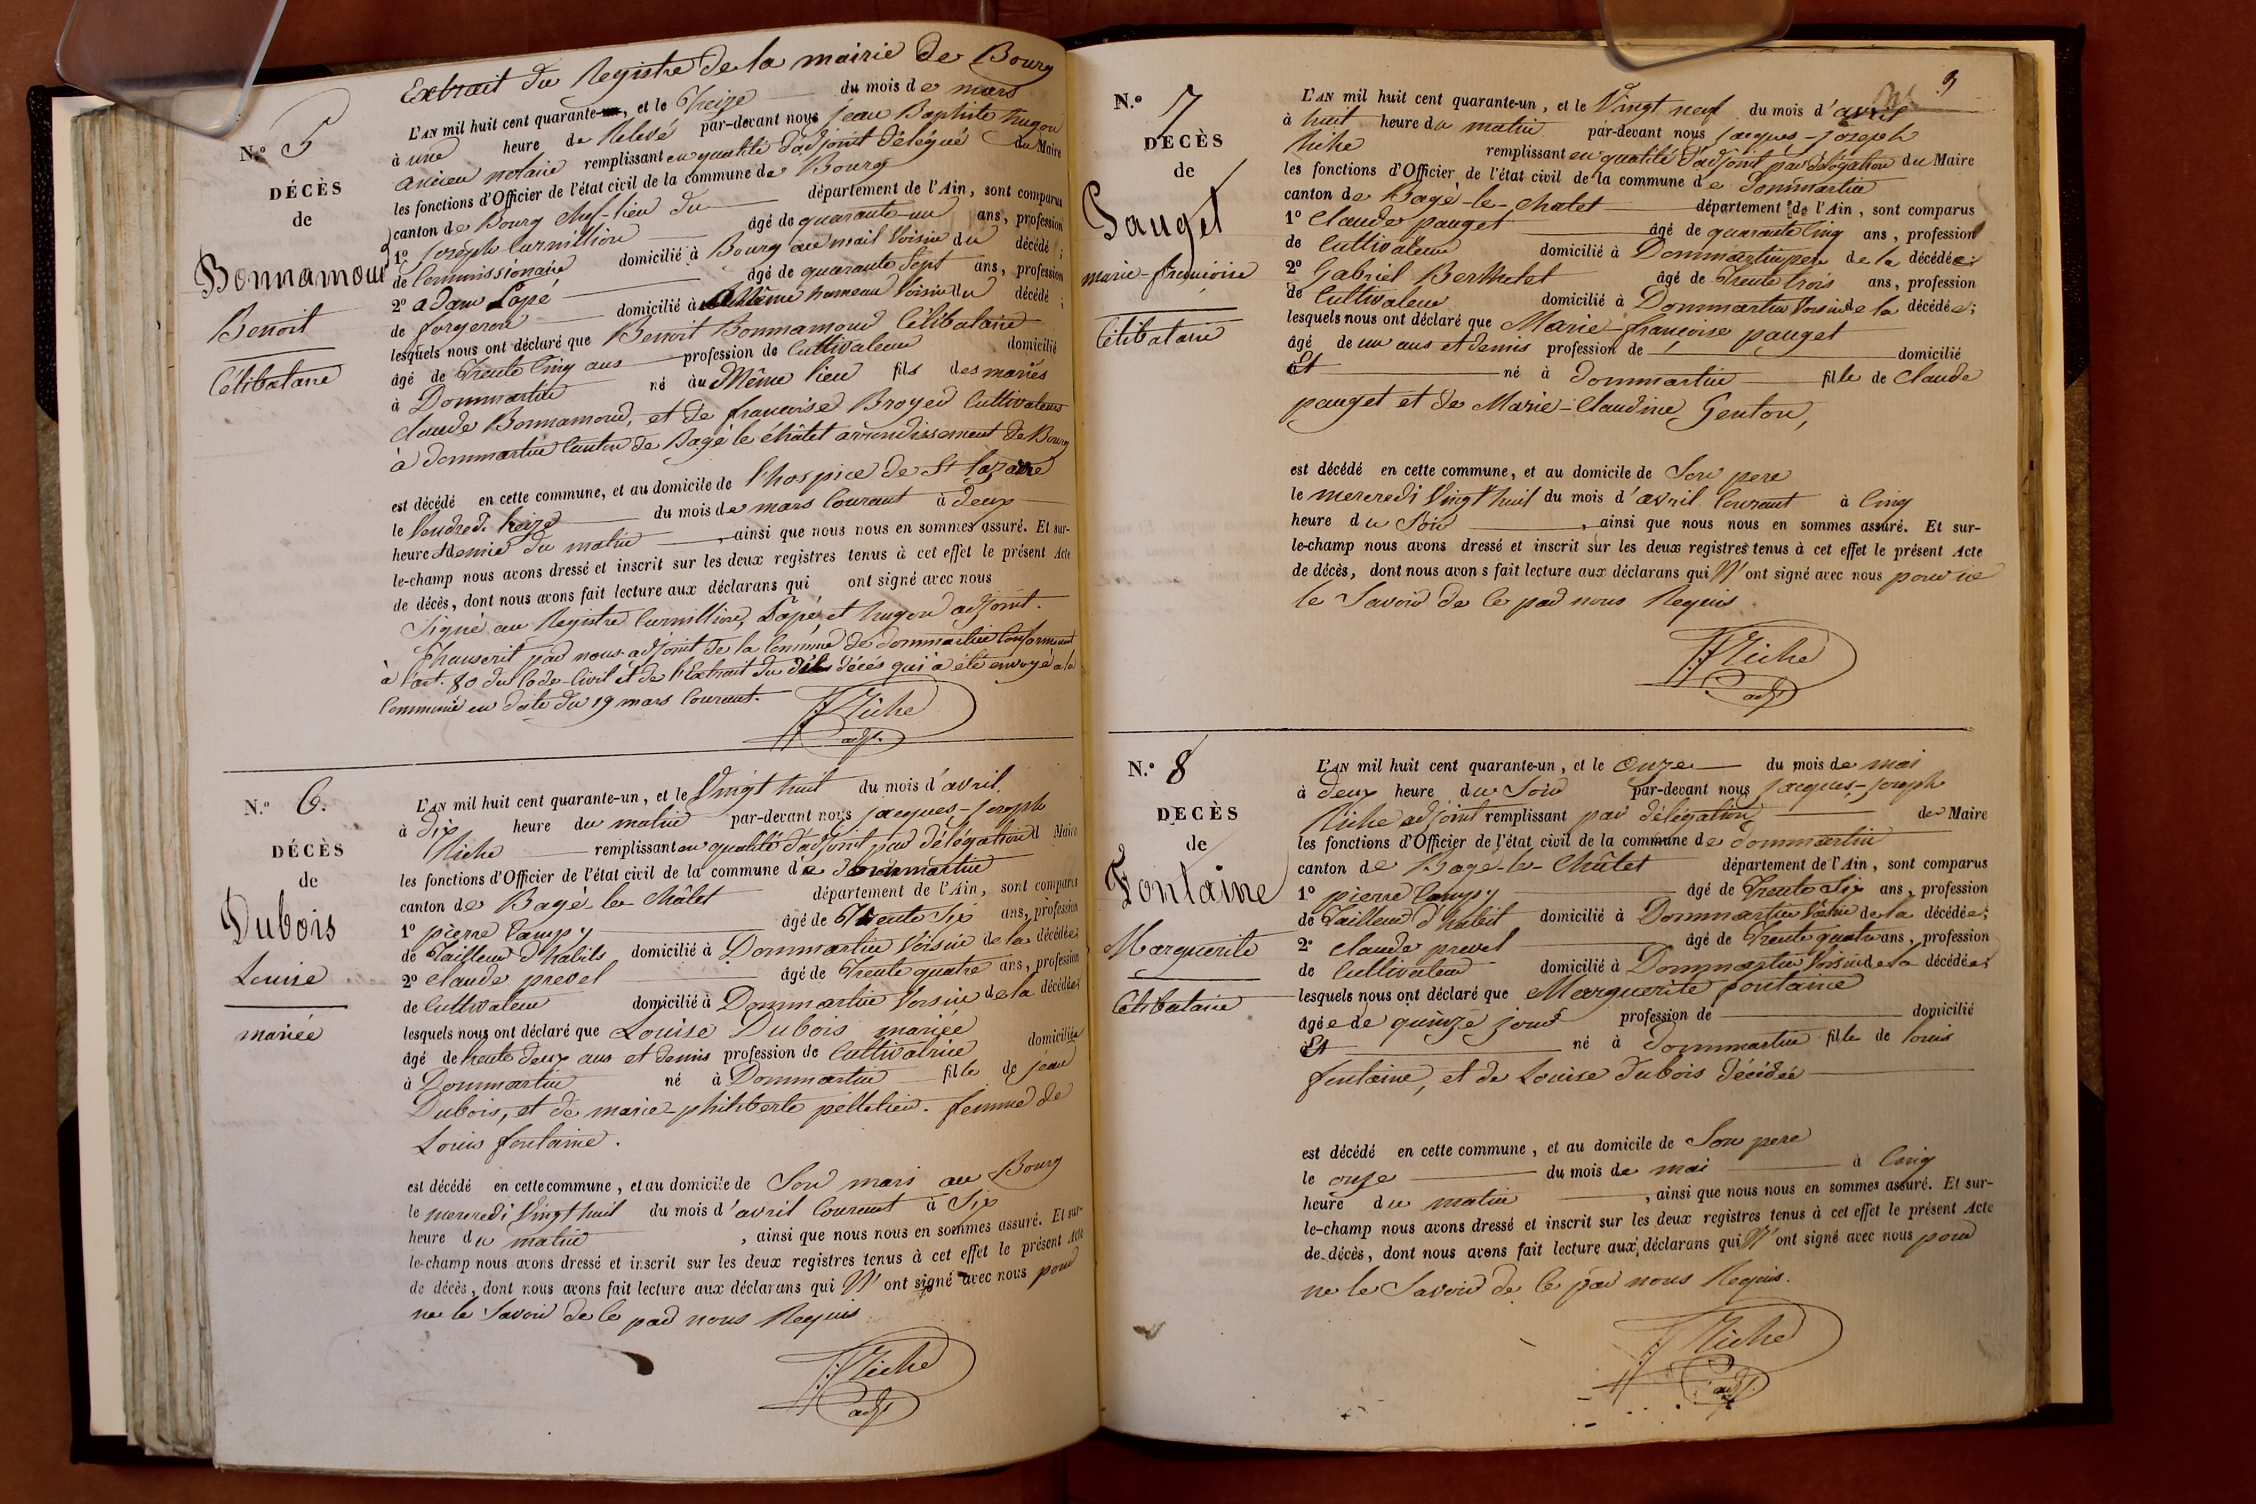 Extrait du Registre de la mairie de Bourg
N.º 5
DÉCÈS
de
Bonnamour
Benoit
Célibataire
L'AN mil huit cent quarante-un, et le Treize du mois de mars
à une heure de Relevé par-devant nous jean Baptiste hugon
ancien notaire remplissant en qualité d'adjoint délégué du Maire
les fonctions d'Officier de l'état civil de la commune de Bourg
canton de Bourg chef-lieu du département de l'Ain, sont comparus
1º joseph Curmillion âgé de quarante-un ans, profession
de Commissionaire domicilié à Bourg au mail Voisin du décédé;
2º adam Lapé âgé de quarante Sept ans, profession
de forgeron domicilié à même hameau Voisin du décédé;
lesquels nous ont déclaré que Benoit Bonnamour Célibataire
âgé de Trente Cinq ans profession de Cultivateur domicilié
à Dommartin né au Même lieu fils des mariés
claude Bonnamour, et de francoise Broyer Cultivateurs
à dommartin Canton de Bagé le châtel arrondissement de Bourg
est décédé en cette commune, et au domicile de l'hospice de St lazare
le Vendredi treize du mois de mars Courant à deux
heure et demie du matin, ainsi que nous nous en sommes assuré. Et sur-
le-champ nous avons dressé et inscrit sur les deux registres tenus à cet effet le présent Acte
de décès, dont nous avons fait lecture aux déclarans qui ont signé avec nous
Signé au Registre Curmillion, Lapé, et hugon adjoint.
Transcrit par nous adjoint de la Commune de dommartin Conformement
à l'art. 80 du Code Civil et de l'Extrait du dit décés qui a été envoyé a la
Commune en date du 19 mars Courant.
Riche
adjt.
N.º 6.
DÉCÈS
de
Dubois
Louise
mariée
L'AN mil huit cent quarante-un, et le Vingt huit du mois d'avril
à dix heure du matin par-devant nous jacques-joseph
Riche remplissant en qualité d'adjoint par délégation d Maire
les fonctions d'Officier de l'état civil de la commune de dommartin
canton de Bagé-le-Châtel département de l'Ain, sont comparus
1º pierre Campy âgé de Trente Six ans, profession
de Tailleur d'habits domicilié à Dommartin Voisin de la décédée;
2º claude prevel âgé de Trente quatre ans, profession
de Cultivateur domicilié à Dommartin Voisin de la décédée;
lesquels nous ont déclaré que Louise Dubois mariée
âgé de trente deux ans et demis profession de Cultivatrice domiciliée
à Dommartin né à Dommartin fille de jean
Dubois, et de marie-philiberte pelletier. femme de
Louis fontaine.
est décédé en cette commune, et au domicile de Son mari au Bourg
le mercredi Vingt huit du mois d'avril Courant à Six
heure du matin, ainsi que nous nous en sommes assuré. Et sur-
le-champ nous avons dressé et inscrit sur les deux registres tenus à cet effet le présent Acte
de décès, dont nous avons fait lecture aux déclarans qui N'ont signé avec nous pour
ne le Savoir de ce par nous Requis
Riche
adjt
3
N.º 7
DÉCÈS
de
Pauget
marie-françoise
Célibataire
L'AN mil huit cent quarante-un, et le Vingt neuf du mois d'avril
à huit heure du matin par-devant nous jacques-joseph
Riche remplissant en qualité d'adjoint par délégation du Maire
les fonctions d'Officier de l'état civil de la commune de Dommartin
canton de Bagé-le-Chatel département de l'Ain, sont comparus
1º Claude pauget âgé de quarante Cinq ans, profession
de Cultivateur domicilié à Dommartin pere de la décédée;
2º Gabriel Berthelet âgé de Trente trois ans, profession
de Cultivateur domicilié à Dommartin Voisin de la décédée;
lesquels nous ont déclaré que Marie-françoise pauget
âgé de un ans et demis profession de domicilié
à Et né à dommartin fille de Claude
pauget et de Marie-Claudine Genton,
est décédé en cette commune, et au domicile de Son pere
le mercredi Vingt huit du mois d'avril Courant à Cinq
heure du Soir, ainsi que nous nous en sommes assuré. Et sur-
le-champ nous avons dressé et inscrit sur les deux registres tenus à cet effet le présent Acte
de décès, dont nous avons fait lecture aux déclarans qui N'ont signé avec nous pour ne
le Savoir de ce par nous Requis
Riche
adjt
N.º 8
DÉCÈS
de
Fontaine
Marguerite
Célibataire
L'AN mil huit cent quarante-un, et le onze du mois de mai
à deux heure du Soir par-devant nous jacques-joseph
Riche adjoint remplissant par délégation de Maire
les fonctions d'Officier de l'état civil de la commune de dommartin
canton de Bagé-le-Châtel département de l'Ain, sont comparus
1º pierre Campy âgé de Trente Six ans, profession
de Tailleur d'habit domicilié à Dommartin Voisin de la décédée;
2º claude prevel âgé de Trente quatre ans, profession
de Cultivateur domicilié à Dommartin Voisin de la décédée;
lesquels nous ont déclaré que Marguerite fontaine
âgée de quinze jours profession de domicilié
à Et né à dommartin fille de louis
fontaine, et de Louise dubois décédée
est décédé en cette commune, et au domicile de Son pere
le onze du mois de mai à Cinq
heure du matin, ainsi que nous nous en sommes assuré. Et sur-
le-champ nous avons dressé et inscrit sur les deux registres tenus à cet effet le présent Acte
de décès, dont nous avons fait lecture aux déclarans qui N'ont signé avec nous pour
ne le Savoir de ce par nous Requis.
Riche
adjt.